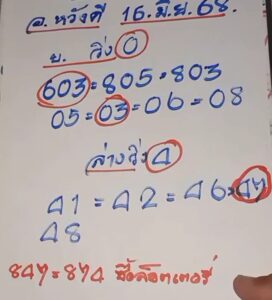 อ. หวังดี 16. มิ.ย 68.
บ. วิ่ง 0
603 = 805 = 803
05 = 03 = 06 = 08
ล่างวิ่ง 4
41 = 42 = 46 = 47
48
847 = 874 ซื้อล็อตเตอรี่